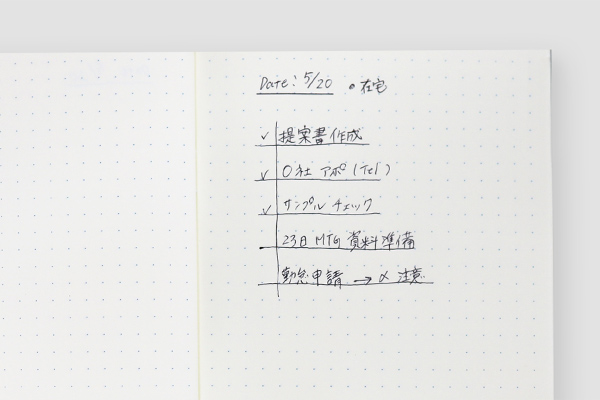 Date: 5/20 • 在宅
✓ 提案書作成
✓ O社 アポ (Tel)
✓ サンプル チェック
23日 MTG 資料準備
勤怠申請 → 〆 注意